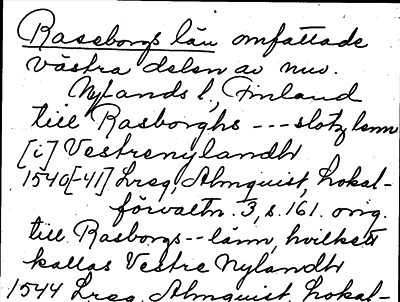 Raseborgs län omfattade
västra delen av nuv.
Nylands l, Finland
till Rasborghs --- slotz lenn
[i] Vestrenylandh
1540[-41] Lreg, Almquist, Lokal-
förvaltn. 3, s. 161. orig.
till Rasborgs -- länn, hvilkett
kallas Vestre Nylandh
1544 Lreg. Almquist, Lokal-